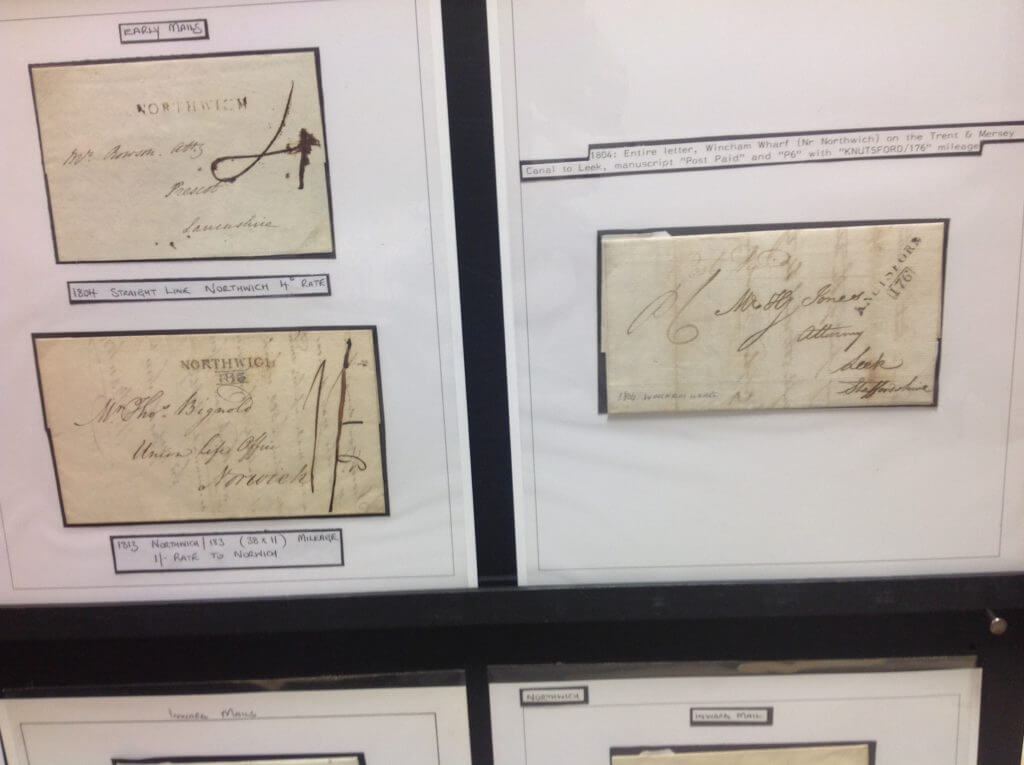 EARLY MAILS
NORTHWICH
4
Mr. Rowson. Atty
Prescot
Lancashire
1804 STRAIGHT LINE NORTHWICH 4d RATE
NORTHWICH
Mr. Thos. Bignold
Union Life Office
Norwich
1813 NORTHWICH/183 (38 x 11) MILEAGE
1/- RATE TO NORWICH
1804: Entire letter, Wincham Wharf (Nr Northwich) on the Trent & Mersey
Canal to Leek, manuscript "Post Paid" and "P6" with "KNUTSFORD/176" mileage
KNUTSFORD
176
P6
Jones
Attorny
Leek
Staffordshire
1804 WINCHAM WHARF
INWARD MAILS
NORTHWICH
INWARD MAIL